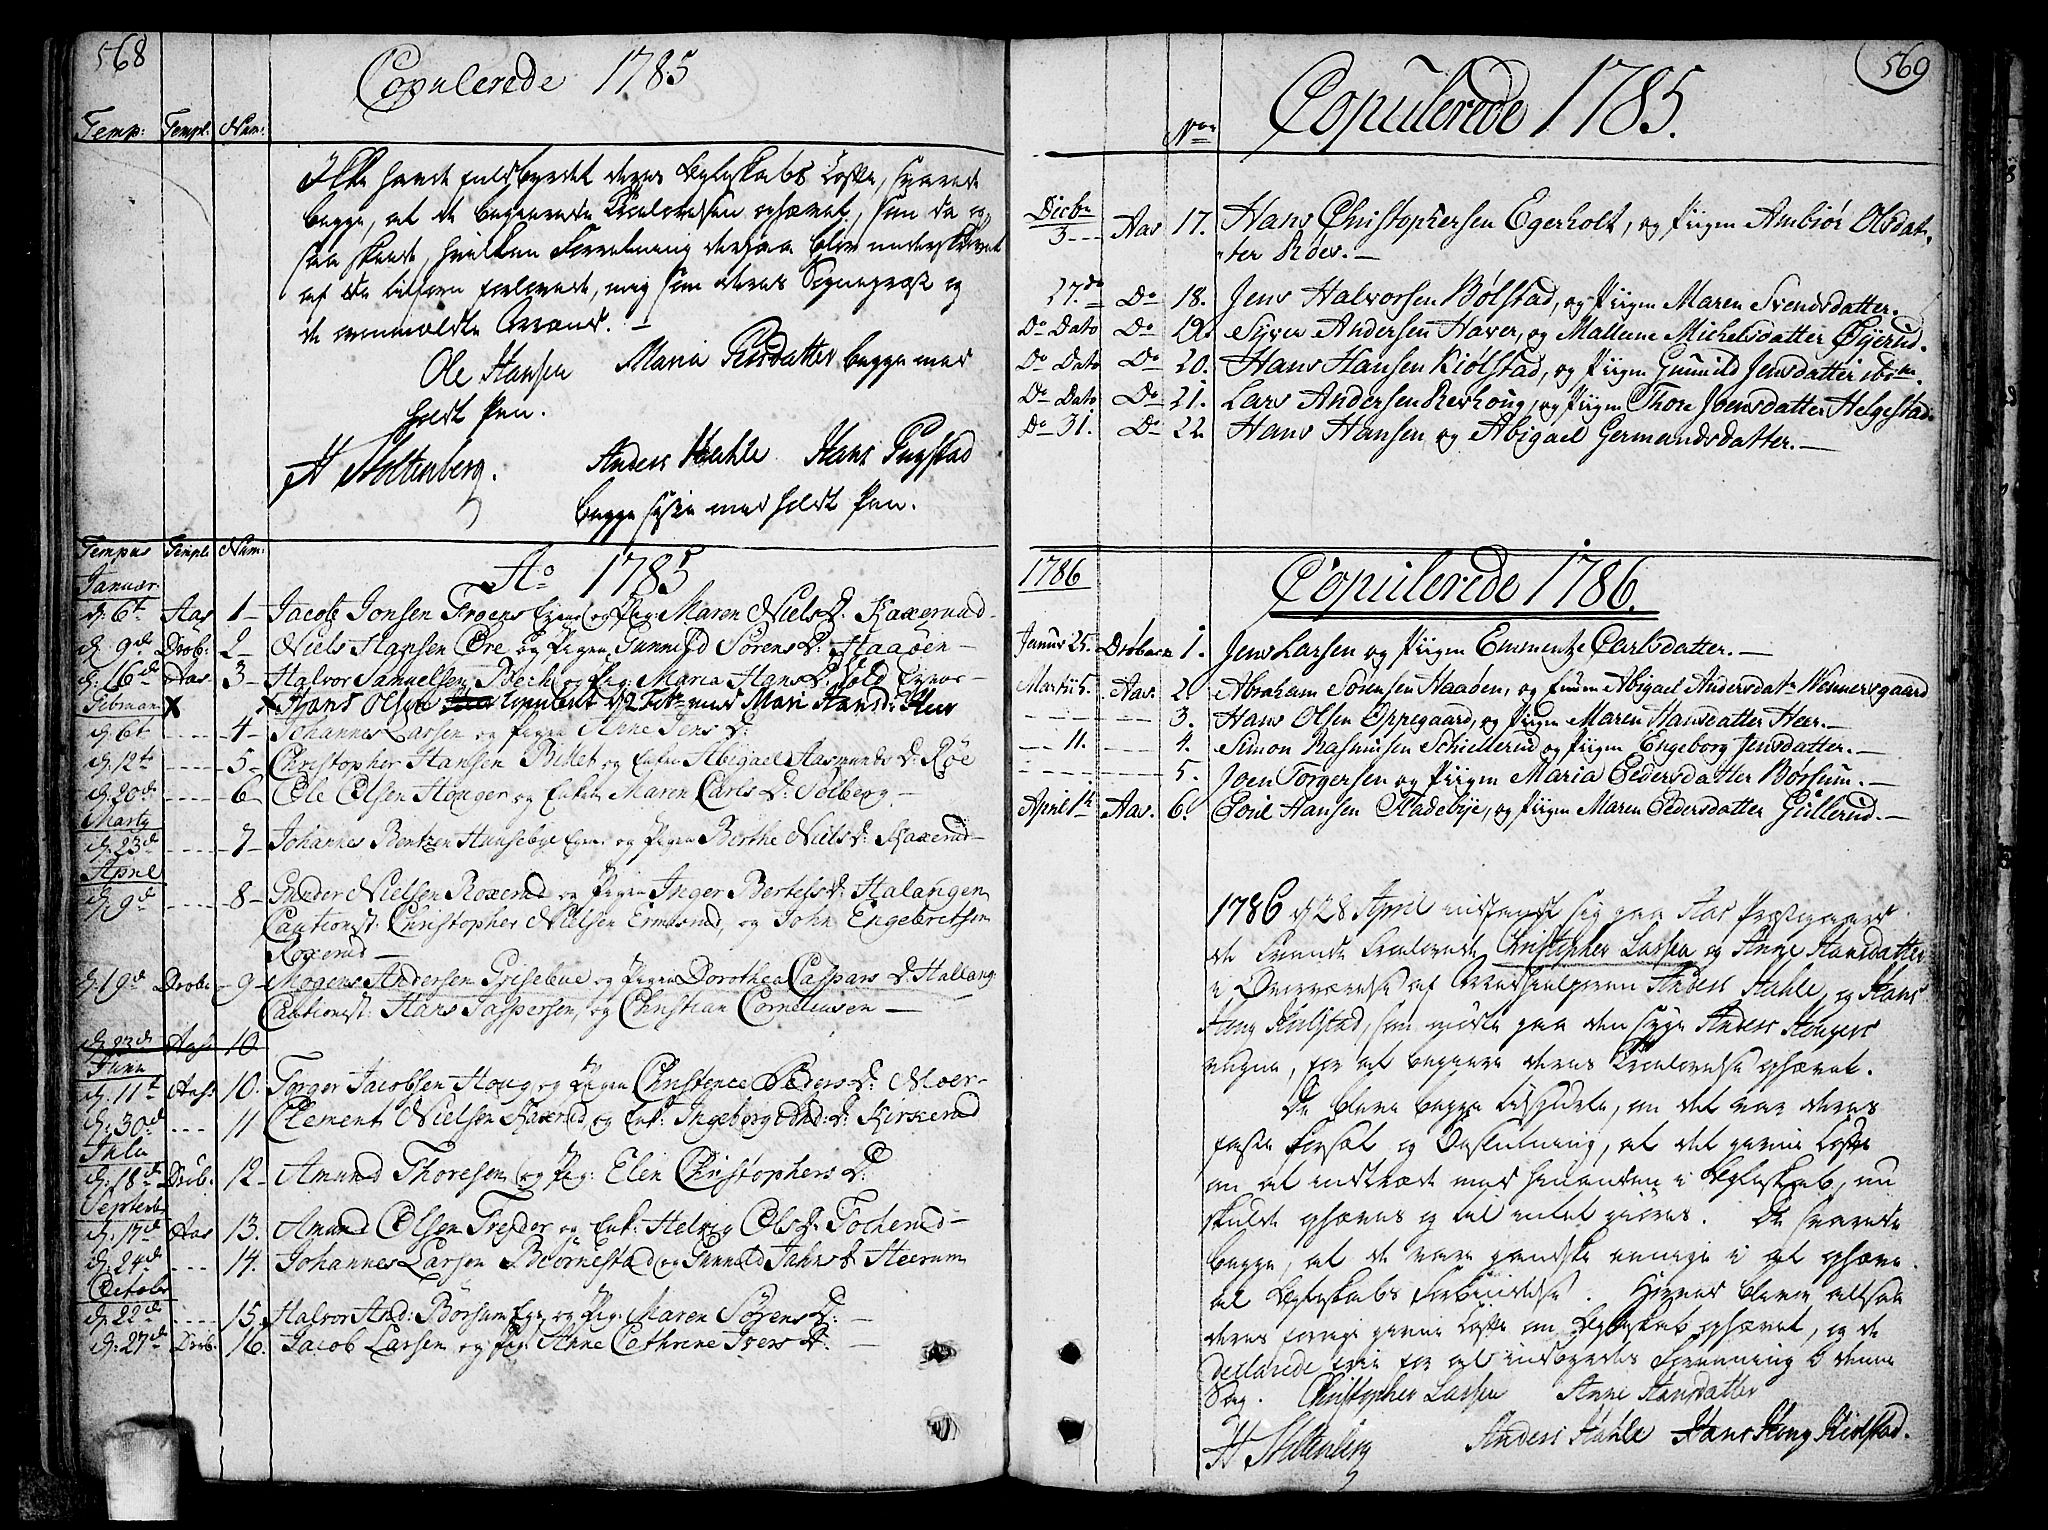 568
Copulerede 1785
Temp: Templ: Num:
Ikke havde fuldbyrdet deres Ægteskabs Løfte, svarede
begge, at de begierede Trolovelsen ophævet, som da og
saa skeede, hvilken Forretning derpaa blev underskrevet
af de tilforn forlovede, mig som deres Sognepræst og
de ommeldte Mænd. —
Ole Hansen Maria Persdatter begge med
holdt Pen.
H Stoltenberg. Anders Hahle Hans Fugstad
begge sidste med holdt Pen.
Tempus Temple Num:
Ao 1785
Januar:
d. 6t Aas 1 — Jacob Jonsen Froens og Pig: Maren Niels D. Kaxerud —
d. 9de Drob: 2 — Niels Hansen Øre og Pigen Gunnild Sörens D: Haaöen —
d. 16de Aas 3 — Halvor Samuelsen Bech og Pig: Maria Hans D.
Februar X X Hans Olsen copuleret d 2 Febr med Mari Hansd: Heer
d. 6t ---- 4 — Johannes Larsen og Pigen Anne Jens D:
d. 12te ---- 5 — Christopher Hansen Billet og Enken Abigael Aasmunds D: Röe
d. 20de ---- 6 — Ole Olsen Houger og Enken Maren Carls D: Solberg —
Marty
d. 23de ---- 7 — Johannes Bentzen Hunsebye og Pigen Berthe Niels D: Kaxerud —
April
d. 9de ---- 8 — Gunder Nielsen Roxerud og Pigen Inger Bertels D: Halangen
Cautionist: Christopher Nielsen Ermesrud, og John Engebretsen
Roxerud —
d. 19d Drobe 9 — Mogens Andersen Grisebue og Pigen Dorothea Caspars D: Hallang
Cautionist: Hans Jaspersen, og Christian Corneliusen —
d. 23de Aas: 10.
Juny
d. 11t Aas: 10. Torger Jacobsen Houg og Pigen Christence Peders D: Moer —
d. 30de ---- 11 Clement Nielsen Kaxrud og Enk: Ingeborg D: Kirkerud
July
d. 18de Drib: 12 — Amund Thoresen og Pig: Elen Christophers D:
Septembr
d. 17de Aas 13. Amund Olsen Treider og Enk: Helvig Ols D: Tocherud —
d. 24de ---- 14. Johannes Larsen Biörnestad og Gunnild Jahns D Heerum
October
d. 22de ---- 15. Halvor And: Börsum og Pig: Maren Sörens D: —
d. 27de Drib: 16. Jacob Larsen og Pig: Anne Cathrine Ivers D: —
569
Copulerede 1785.
Nro
Decbr
3 --- Aas 17. Hans Christophersen Egerholt, og Piigen Ambiör Olsdat-
ter Röes. —
27.de Do 18. Jens Halvorsen Bölstad, og Piigen Maren Svendsdatter.
Do Dato Do 19. Syver Andersen Haver, og Mallene Michelsdatter Öyerud.
Do Dato Do 20. Hans Hansen Kiölstad, og Piigen Gunnild Jensdatter ibm.
Do Dato Do 21. Lars Andersen Revhoug, og Piigen Thore Joensdatter Helgestad.
Do 31. Do 22. Hans Hansen, og Abigael Germundsdatter. —
1786 Copulerede 1786.
Januar 25. Dröbach 1. Jens Larsen og Piigen Emmentze Carlsdatter. —
Martii 5. Aas. 2. Abraham Sörensen Haaöen, og Enken Abigael Andersdatr Wennersgaard
------ 3. Hans Olsen Oppegaard, og Piigen Maren Hansdatter Heer. —
--- 11. ---- 4. Simon Rasmusen Schiellerud og Piigen Engeborg Jensdatter. —
------ 5. Joen Torgersen og Piigen Maria Pedersdatter Börsum. —
April 1te Aas. 6. Poul Hansen Stadebye, og Piigen Maren Pedersdatter Gullerud. —
1786 d 28 April indfandt sig paa Aas Præstegaard
de Trende Trolovede Christopher Lassen og Anne Hansdatter
i Overværelse af Anders Hahle, og Hans
Houg Kiilstad, som mødte paa den syge Anders Hougers
vegne, for at begiere deres Trolovelse ophævet.
De bleve begge tilspurte, om det var deres
faste forsæt og Beslutning, at det givne Løfte
om at indtræde med hinanden i Ægteskab, nu
skulde ophæves og til intet giøres. De svarede
begge, at de vare gandske eenige i at ophæve
al Ægteskabs forbindelse. Hvorved bleve altsaa
deres forrige givne Løfte om Ægteskab ophævet, og de
declarede frie for al indbyrdes Foreening i denne
Sag. Christopher Lassen Anne Hansdatter
H Stoltenberg Anders Hahle Hans Houg Kiölstad.